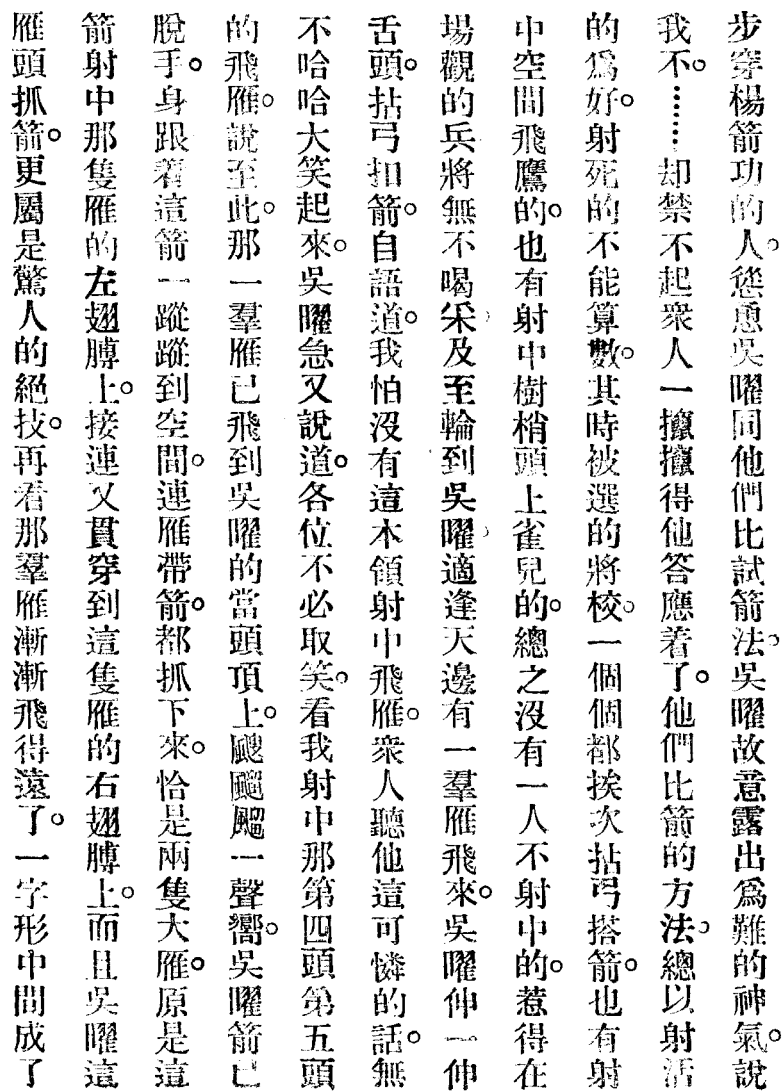 步穿楊箭功的人。慫恿吳曜同他們比試箭法。吳曜故意露出爲難的神氣。說
我不。……却禁不起衆人一攛攛得他答應着了。他們比箭的方法。總以射活
的爲好。射死的不能算數。其時被選的將校。一個個都挨次拈弓搭箭。也有射
中空間飛鷹的。也有射中樹梢頭上雀兒的。總之沒有一人不射中的。惹得在
場觀的兵將無不喝采。及至輪到吳曜。適逢天邊有一羣雁飛來。吳曜伸一伸
舌頭。拈弓扣箭。自語道。我怕沒有這本領射中飛雁。衆人聽他這可憐的話。無
不哈哈大笑起來。吳曜急又說道。各位不必取笑。看我射中那第四頭第五頭
的飛雁。說至此。那一羣雁已飛到吳曜的當頭頂上。颼颼颼一聲響。吳曜箭已
脫手。身跟着這箭一蹤。蹤到空間。連雁帶箭。都抓下來。恰是兩隻大雁。原是這
箭射中那隻雁的左翅膊上。接連又貫穿到這隻雁的右翅膊上。而且吳曜這
雁頭抓箭。更屬是驚人的絕技。再看那羣雁漸漸飛得遠了。一字形中間成了